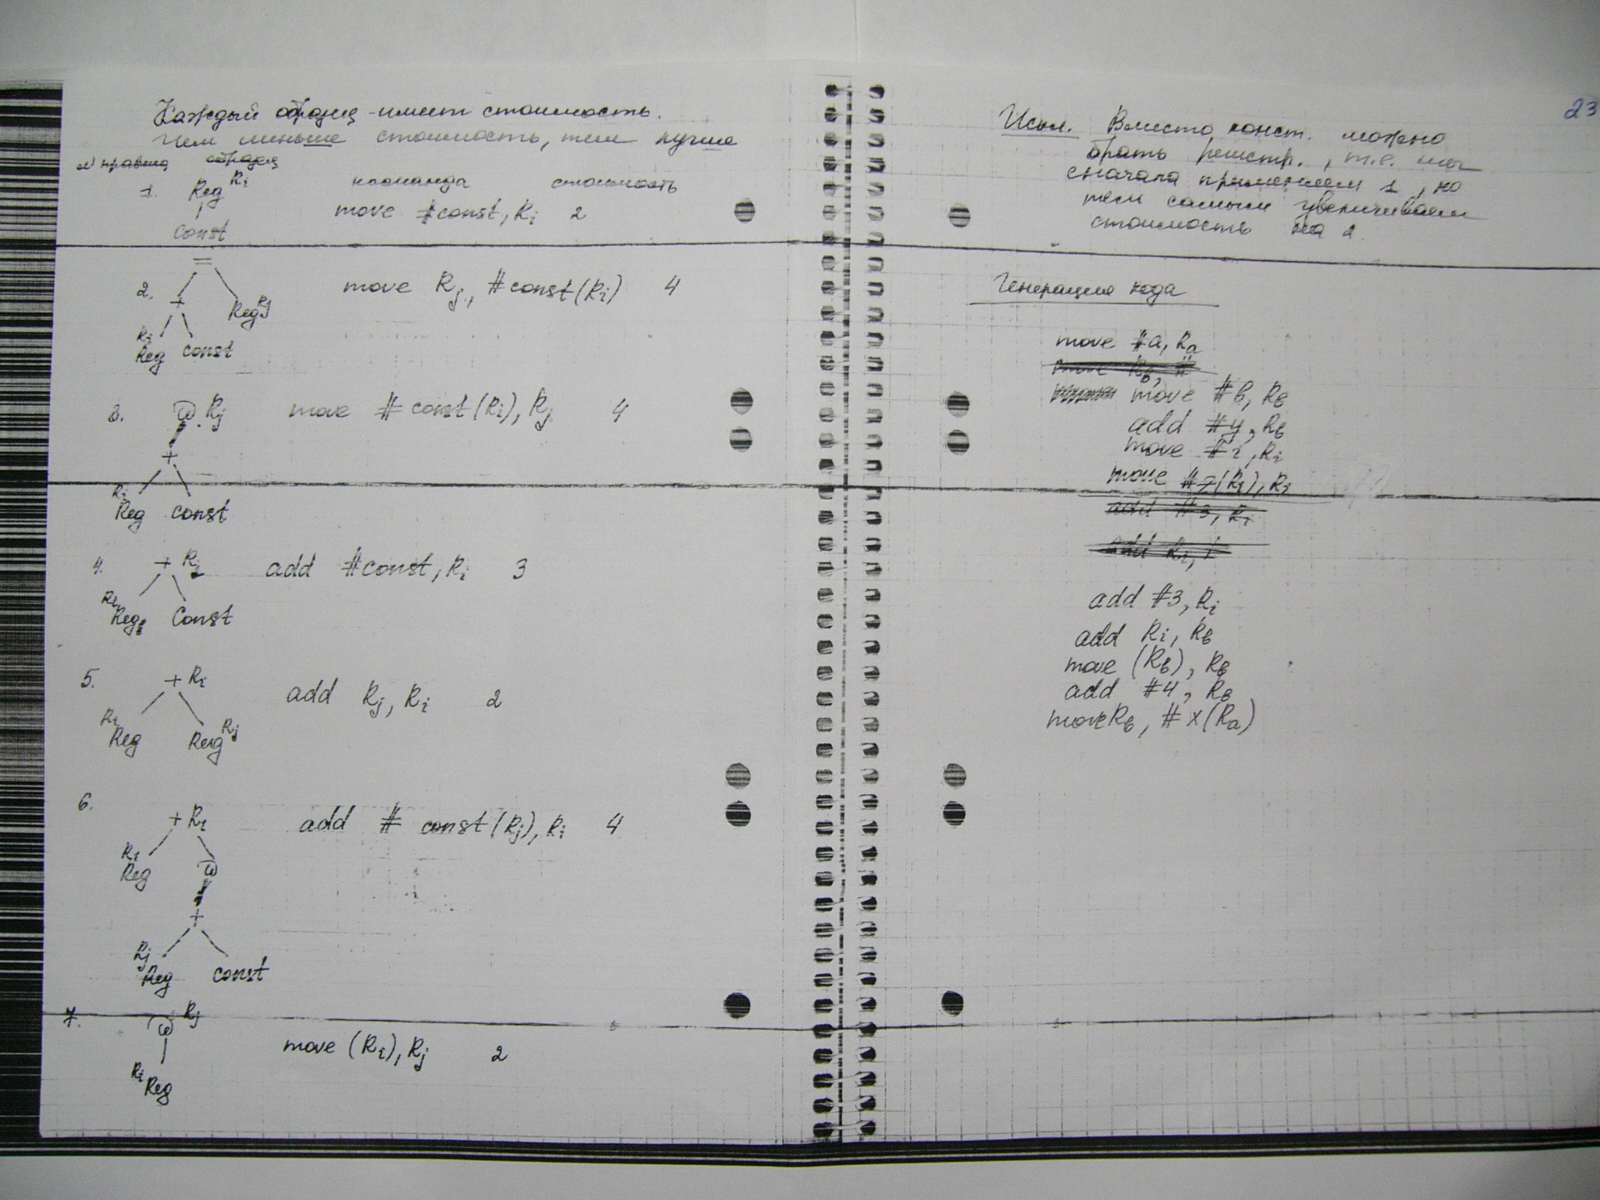 Каждый образец имеет стоимость.
Чем меньше стоимость, тем лучше
N правила образец
команда стоимость
1. Reg Ri
move #const, Ri 2
const
=
2. + Reg Rj
move Rj, #const(Ri) 4
Ri
Reg const
3. @ Rj
move # const(Ri), Rj 4
+
Ri
Reg const
4. + Ri
add #const, Ri 3
Ri
Reg const
5. + Ri
add Rj, Ri 2
Ri Rj
Reg Reg
6. + Ri
add # const(Rj), Ri 4
Ri
Reg @
+
Rj
Reg const
7. @ Rj
move (Ri), Rj 2
Ri Reg
23
Вместо конст. можно
брать регистр., т.е. мы
сначала применяем 1, но
тем самым увеличиваем
стоимость на 2.
Генерация кода
move #a, Ra
move #b, Rb
add #y, Rb
move #i, Ri
move #z(Ri), Ri
add #3, Ri
add Ri, Rb
move (Rb), Rb
add #4, Rb
move Rb, # x(Ra)